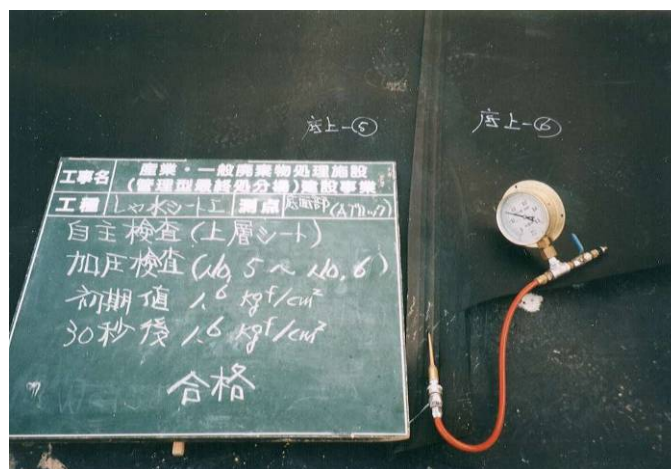 底上-⑤
底上-⑥
工事名 産業・一般廃棄物処理施設
(管理型最終処分場)建設事業
工種 しゃ水シート工 測点 底盤部(Aブロック)
自主検査(上層シート)
加圧検査(No,5~No,6)
初期値 1.6 kgf/cm²
30秒後 1.6 kgf/cm²
合格